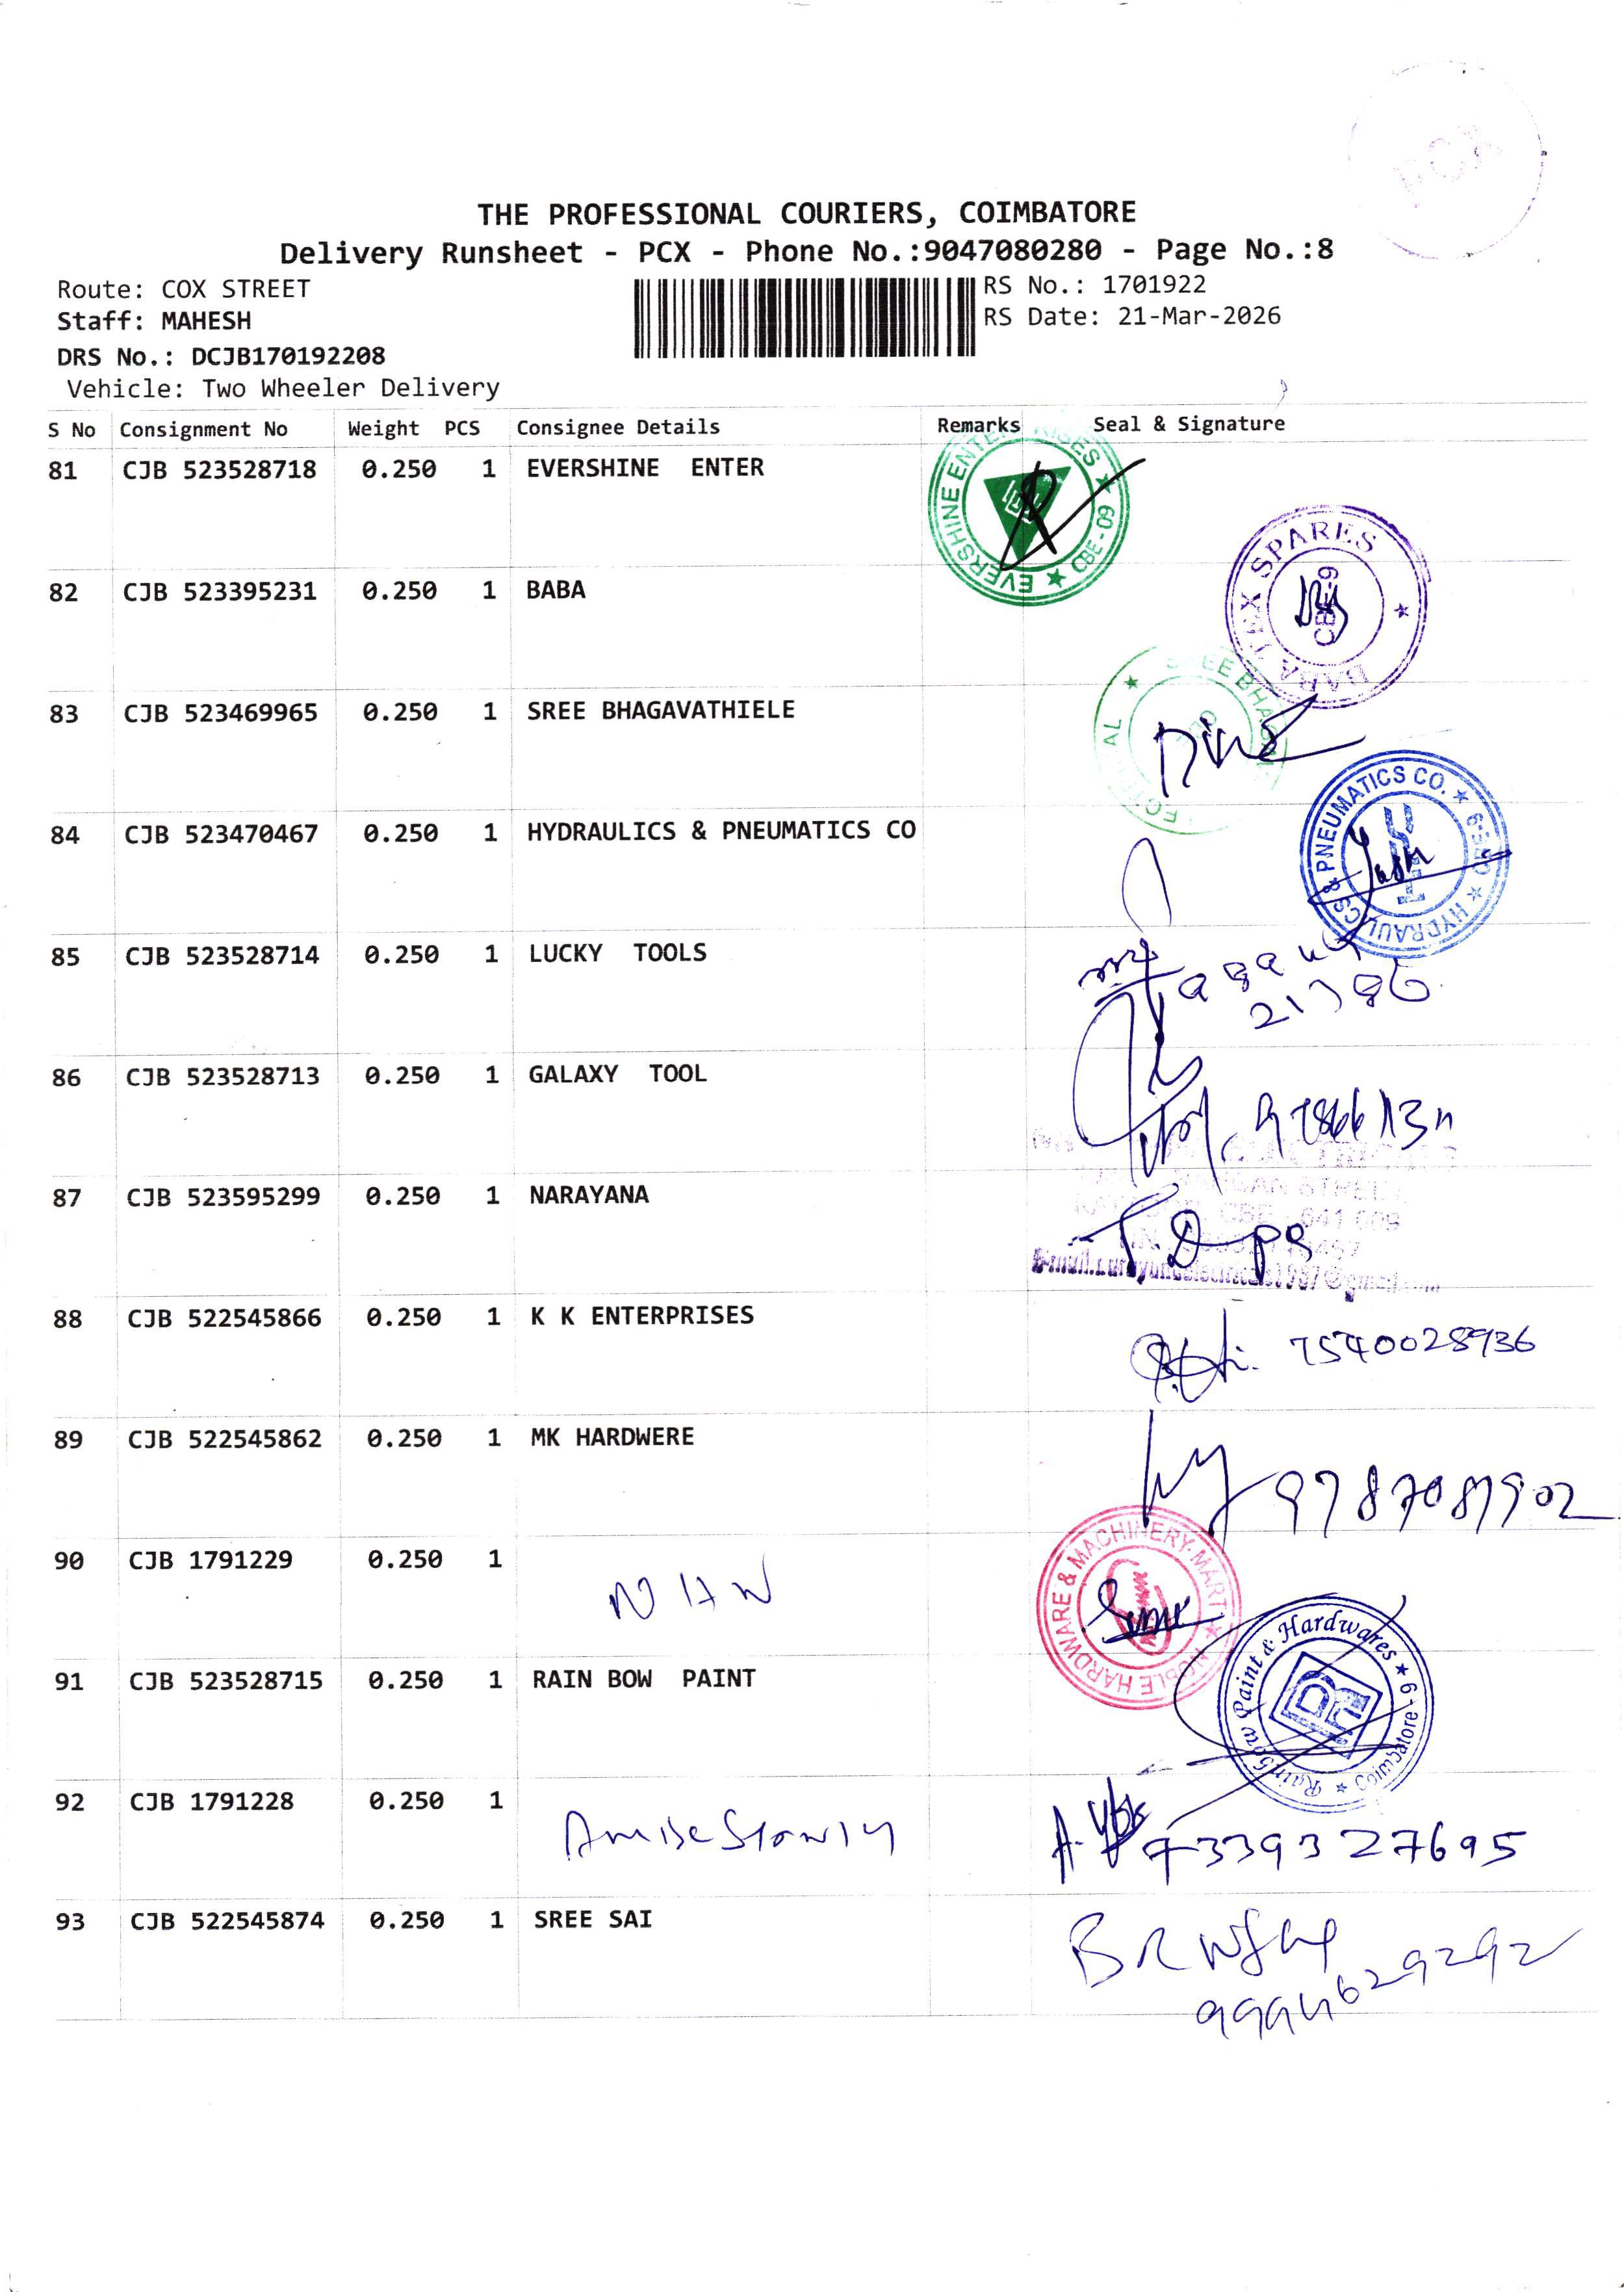 PCX
THE PROFESSIONAL COURIERS, COIMBATORE
Delivery Runsheet - PCX - Phone No.:9047080280 - Page No.:8
Route: COX STREET
RS No.: 1701922
Staff: MAHESH
RS Date: 21-Mar-2026
DRS No.: DCJB170192208
Vehicle: Two Wheeler Delivery
S No Consignment No Weight PCS Consignee Details Remarks Seal & Signature
81 CJB 523528718 0.250 1 EVERSHINE ENTER
EVERSHINE ENTERPRISES ★ CBE-09 ★
82 CJB 523395231 0.250 1 BABA
BABA TEX SPARES ★
CBE-9
83 CJB 523469965 0.250 1 SREE BHAGAVATHIELE
84 CJB 523470467 0.250 1 HYDRAULICS & PNEUMATICS CO
HYDRAULICS & PNEUMATICS CO. ★ CBE-9 ★
85 CJB 523528714 0.250 1 LUCKY TOOLS
86 CJB 523528713 0.250 1 GALAXY TOOL
87 CJB 523595299 0.250 1 NARAYANA
CBE 641 009
88 CJB 522545866 0.250 1 K K ENTERPRISES
7540028936
89 CJB 522545862 0.250 1 MK HARDWERE
9787087902
90 CJB 1791229 0.250 1 NHW
NOBLE HARDWARE & MACHINERY MART ★
91 CJB 523528715 0.250 1 RAIN BOW PAINT
Rainbow Paint & Hardwares ★ Coimbatore-9 ★
92 CJB 1791228 0.250 1
9339327695
93 CJB 522545874 0.250 1 SREE SAI
9994629292